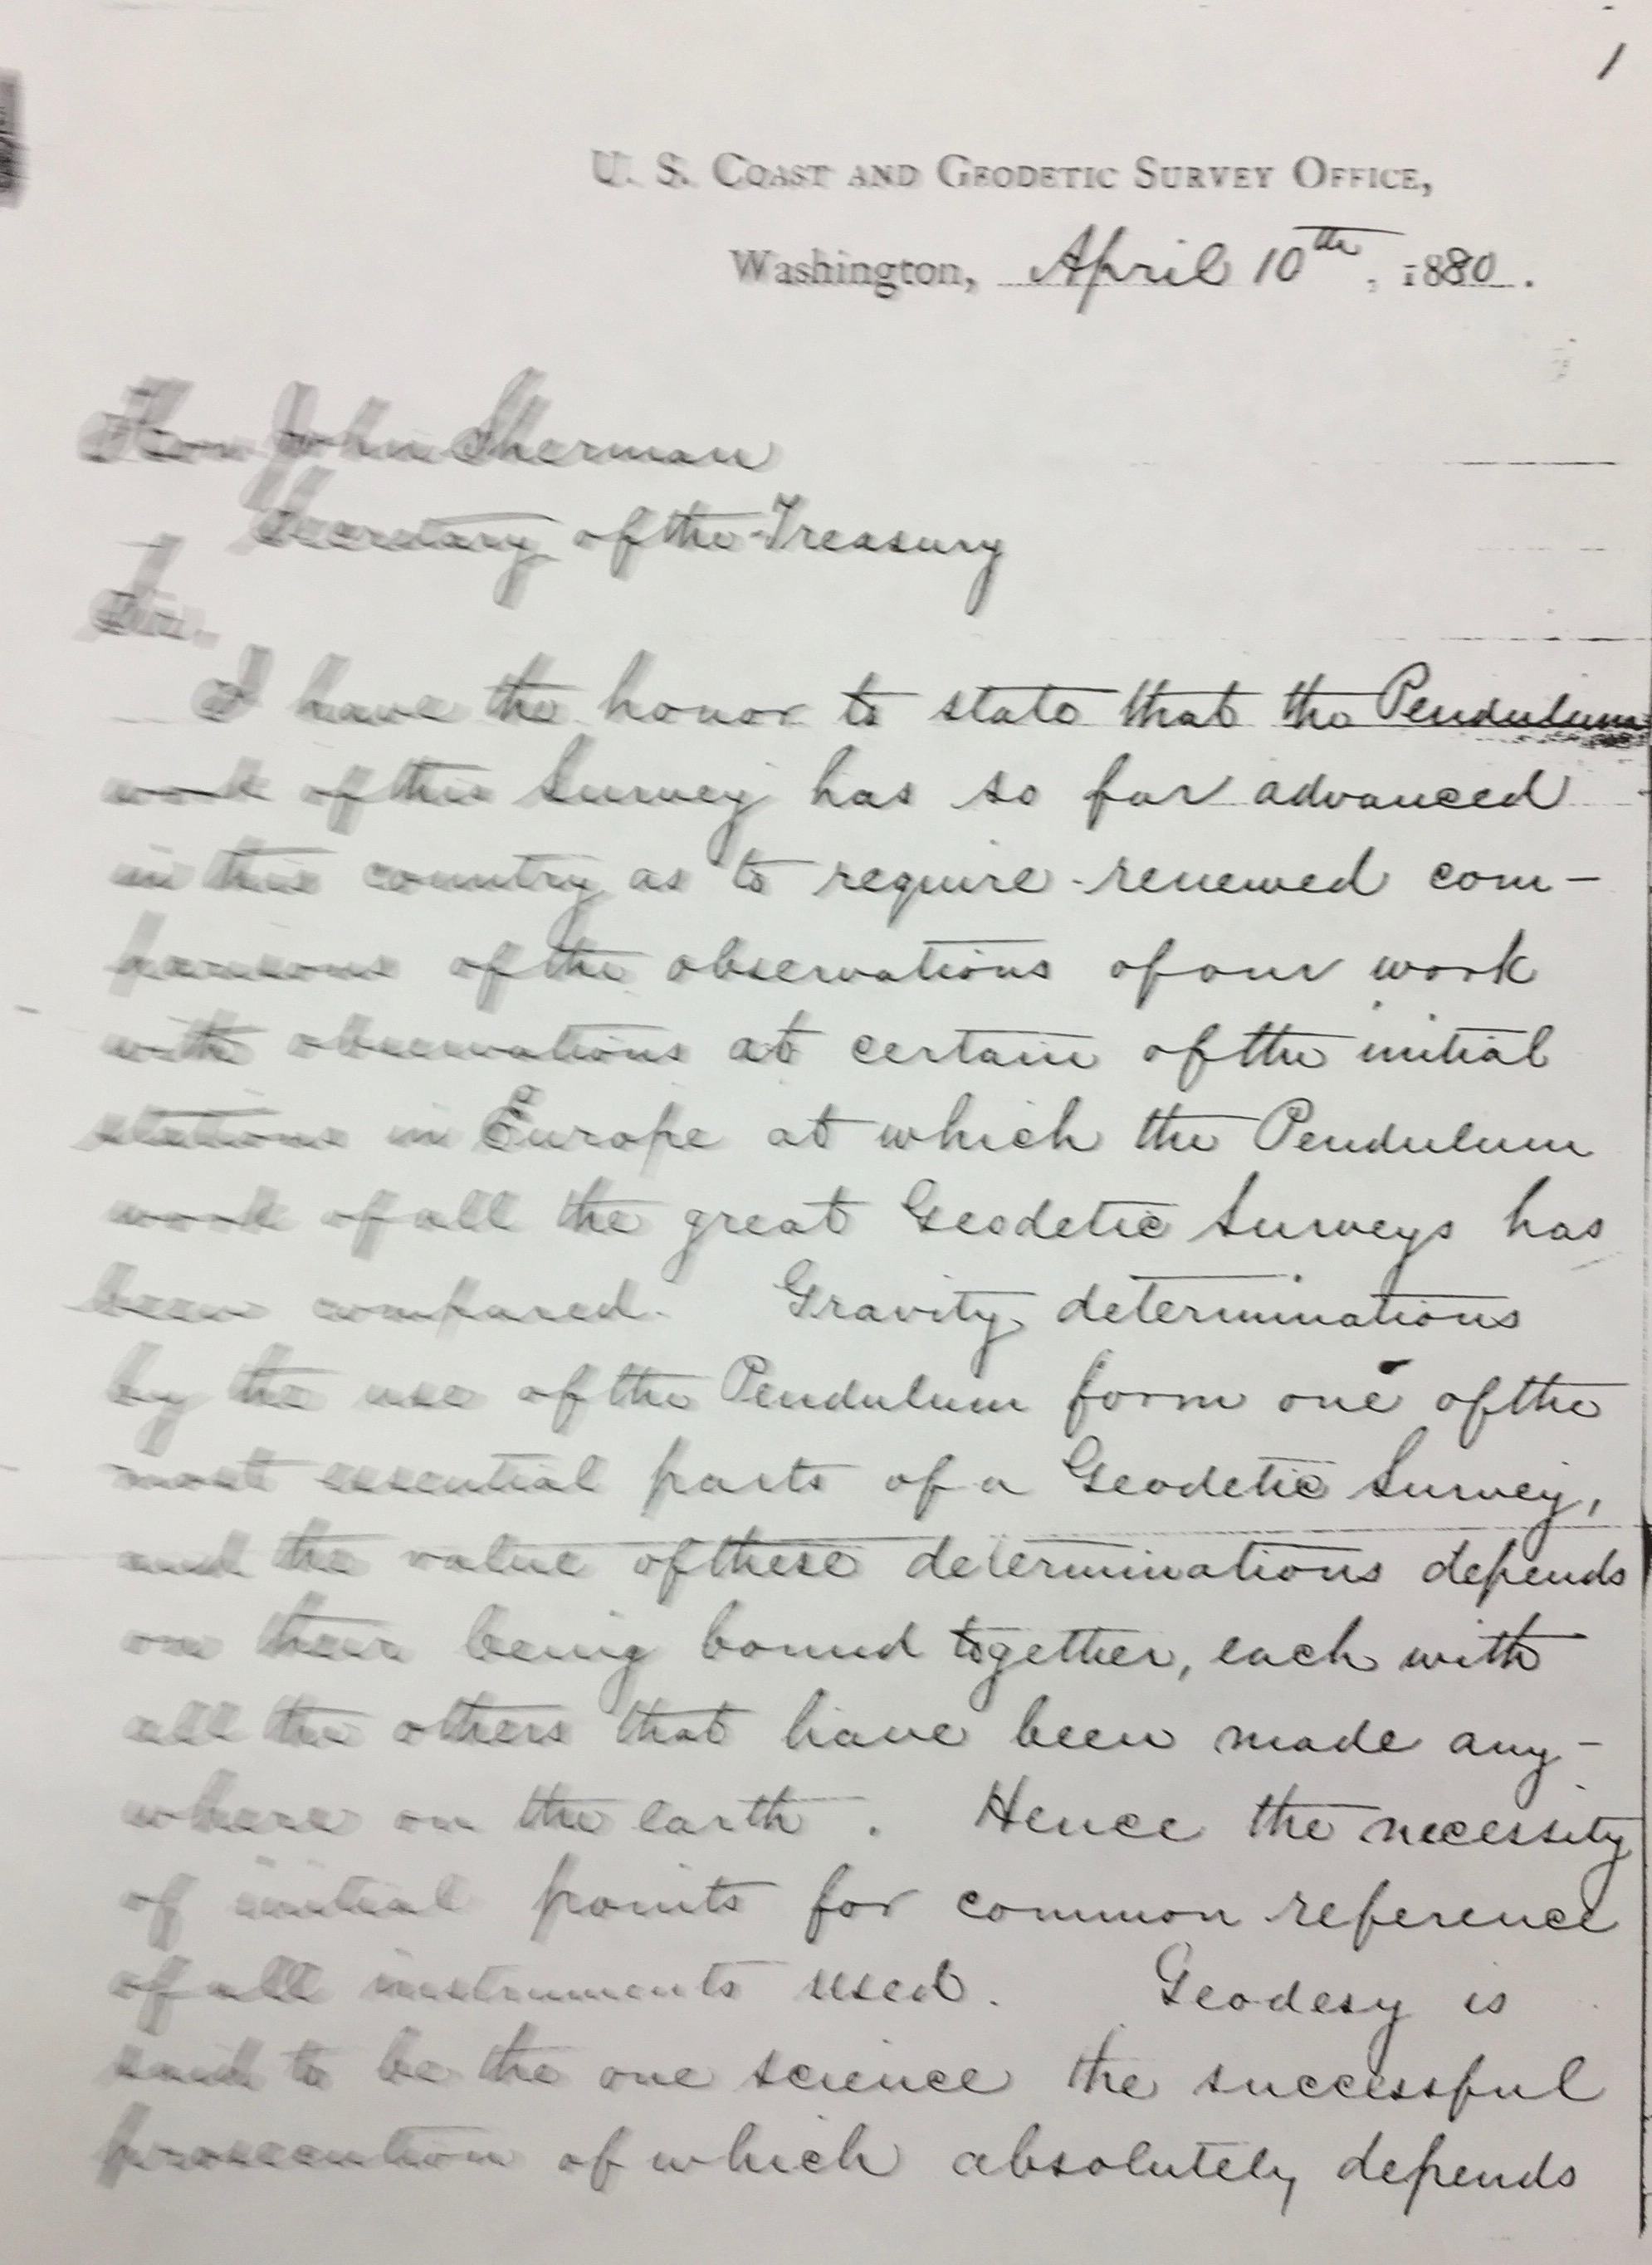 1
U. S. Coast and Geodetic Survey Office,
Washington, April 10th, 1880.
Hon John Sherman
Secretary of the Treasury
Sir.
I have the honor to state that the Pendulum
work of this Survey has so far advanced
in this country as to require renewed com-
parisons of the observations of our work
with observations at certain of the initial
stations in Europe at which the Pendulum
work of all the great Geodetic Surveys has
been compared. Gravity determinations
by the use of the Pendulum form one of the
most essential parts of a Geodetic Survey,
and the value of these determinations depends
on their being bound together, each with
all the others that have been made any-
where on the earth. Hence the necessity
of initial points for common reference
of all instruments used. Geodesy is
said to be the one science the successful
prosecution of which absolutely depends